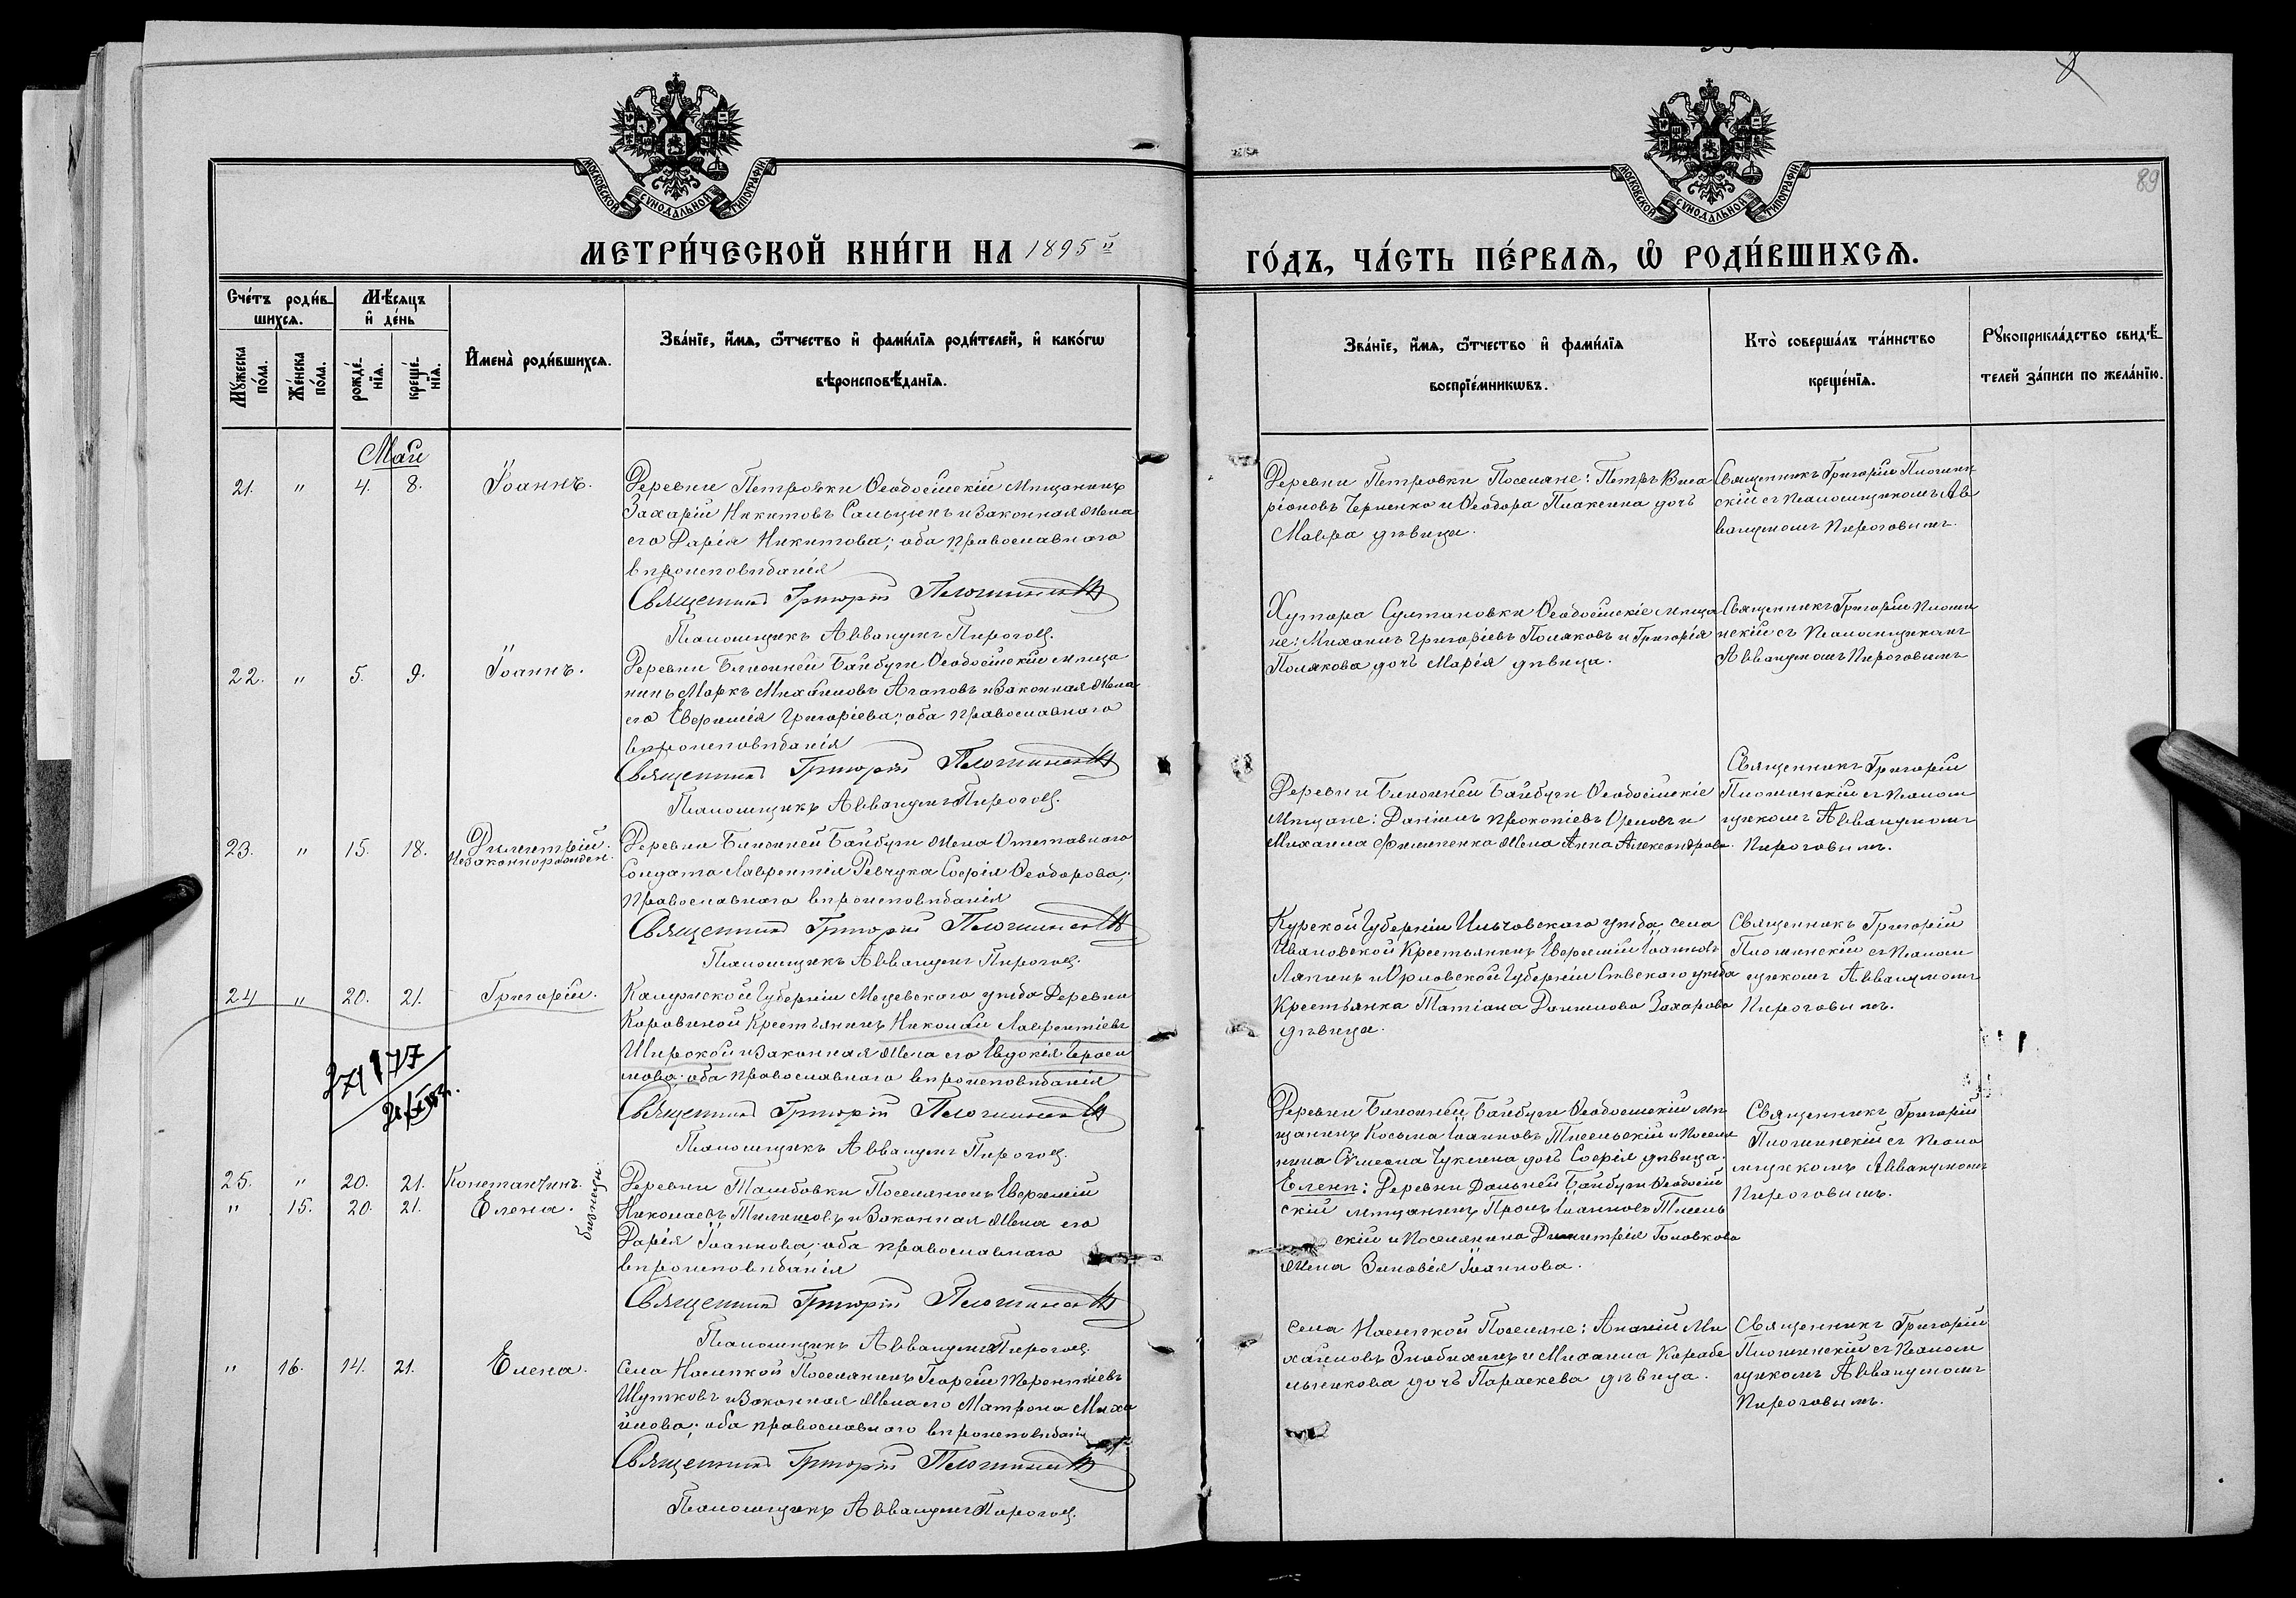 89
МОСКОВСКОЙ СѴНОДАЛЬНОЙ ТИПОГРАФІИ
МОСКОВСКОЙ СѴНОДАЛЬНОЙ ТИПОГРАФІИ
МЕТРИ́ЧЕСКОЙ КНИ́ГИ НА 1895 й
ГО́ДЪ, ЧА́СТЬ ПЕ́РВАѦ, Ѡ РОДИ́ВШИХСѦ.
Сче́тъ роди́в-
шихсѧ.
Мѣ́сяцъ
и де́нь
Мꙋжеска
по́ла.
Же́нска
по́ла.
рожде́-
нїѧ.
креще́-
нїѧ.
Имена̀ роди́вшихсѧ.
Зва́нїе, и́мѧ, ѻ́тчество и фами́лїѧ роди́телей, и како́гѡ
вѣроисповѣ́данїѧ.
Зва́нїе, и́мѧ, ѻ́тчество и фами́лїѧ
воспрїе́мникѡвъ.
Кто̀ соверша́лъ та́инство
креще́нїѧ.
Рꙋкоприкла́дство свидѣ́-
телей за́писи по жела́нїю.
Май
21. " 4. 8. Іоаннъ.
Деревни Петровки Ѳеодосійскій Мѣщанинъ
Захарій Никитовъ Сальцынъ и законная жена
его Дарія Никитова; оба православнаго
вѣроисповѣданія
Священникъ Григорій Плошинскій
Псаломщикъ Аввакумъ Пироговъ.
Деревни Петровки Поселяне: Петръ Вила
ріоновъ Черненко и Ѳеодора Плаксина дочь
Мавра дѣвица.
Священникъ Григорій Плошин
скій съ псаломщикомъ Ав
вакумомъ Пироговымъ.
22. " 5. 9. Іоаннъ.
Деревни Ближней Байбуги Ѳеодосійскій мѣща
нинъ Маркъ Михайловъ Агаповъ и законная жена
его Евфимія Григоріева; оба православнаго
вѣроисповѣданія
Священникъ Григорій Плошинскій
Псаломщикъ Аввакумъ Пироговъ.
Хутора Султановки Ѳеодосійскіе мѣща
не: Михаилъ Григоріевъ Поляковъ и Григорія
Полякова дочь Марія дѣвица.
Священникъ Григорій Плоши
нскій съ псаломщикомъ
Аввакумомъ Пироговымъ
23. " 15. 18. Димитрій.
Незаконнорожден.
Деревни Ближней Байбуги жена Отставнаго
Солдата Лаврентія Ревчука Софія Ѳеодорова;
православнаго вѣроисповѣданія
Священникъ Григорій Плошинскій
Псаломщикъ Аввакумъ Пироговъ.
Деревни Ближней Байбуги Ѳеодосійскіе
Мѣщане: Даніилъ Прокопіевъ Орловъ и
Михаила Филипенка жена Анна Александрова.
Священникъ Григорій
Плошинскій съ псалом
щикомъ Аввакумомъ
Пироговымъ.
24 " 20. 21. Григорій.
Калужской Губерніи Мещевскаго уѣзда Деревни
Коровиной Крестьянинъ Николай Лаврентіевъ
Широкой и законная жена его Евдокія Гераси
мова; оба православнаго вѣроисповѣданія
Священникъ Григорій Плошинскій
Псаломщикъ Аввакумъ Пироговъ.
Курской Губерніи Льговскаго уѣзда, села
Ивановской Крестьянинъ Евфимій Іоанновъ
Ляпинъ и Орловской Губерніи Сѣвскаго уѣзда
Крестьянка Татіана Данилова Захарова
дѣвица.
Священникъ Григорій
Плошинскій съ псалом
щикомъ Аввакумомъ
Пироговымъ.
25. " 20. 21. Константинъ.
" 15. 20. 21. Елена.
близнецы.
Деревни Тамбовки Поселянинъ Евфимій
Николаевъ Тилишовъ и законная жена его
Дарія Іоаннова; оба православнаго
вѣроисповѣданія
Священникъ Григорій Плошинскій
Псаломщикъ Аввакумъ Пироговъ.
Деревни Ближней Байбуги Ѳеодосійскій мѣ
щанинъ Косьма Іоанновъ Тисельскій и Поселя
нина Сѵмеона Чукина дочь Софія дѣвица.
Елены: Деревни Дальней Байбуги Ѳеодосій
скій мѣщанинъ Прокъ Іоанновъ Тисель
скій и Поселянина Димитрія Головкова
жена Зиновія Іоаннова.
Священникъ Григорій
Плошинскій съ псало
мщикомъ Аввакумомъ
Пироговымъ.
" 16. 14. 21. Елена.
Села Насыпкой Поселянинъ Георгій Терентіевъ
Шутковъ и законная жена его Матрона Миха
йлова; оба православнаго вѣроисповѣдані
Священникъ Григорій Плошинскій
Псаломщикъ Аввакумъ Пироговъ.
Села Насыпкой Поселяне: Ананій Ми
хайловъ Знобихинъ и Михаила Карабе
льникова дочь Параскева дѣвица.
Священникъ Григорій
Плошинскій съ псалом
щикомъ Аввакумомъ
Пироговымъ.